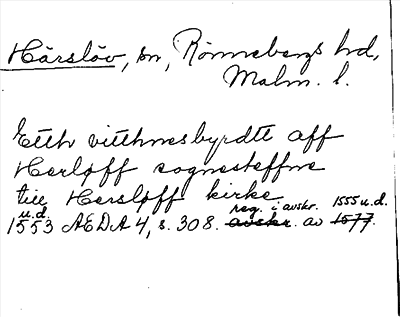 Härslöv, sn, Rönnebergs hd,
Malm. l.
Etth vitthnesbyrdtt aff
Herløff sognesteffne
till Hersløff kirke.
u.d. reg. i avskr. 1555 u.d.
1553 AEDA 4, s. 308. avskr. av 1577.